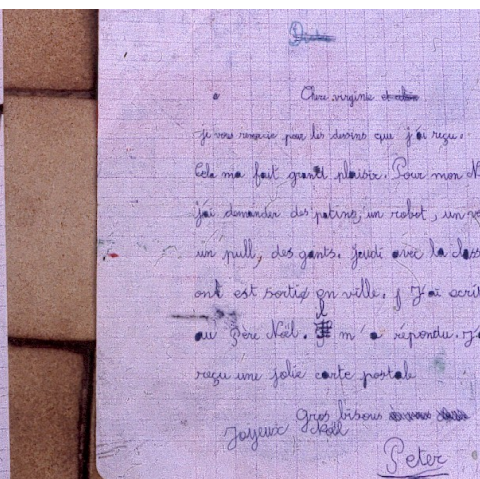 Chère virginie
je vous remercie pour les dessins que j'ai reçu.
Cela ma fait grand plaisir. Pour mon N
j'ai demander des patins, un robot, un
un pull, des gants. Jeudi avec la class
ont est sortie en ville. J'ai ecrit
au Père Noël. Il m'a répondu. J'a
reçu une jolie carte postale
Gros bisous
Joyeux Noël
Peter